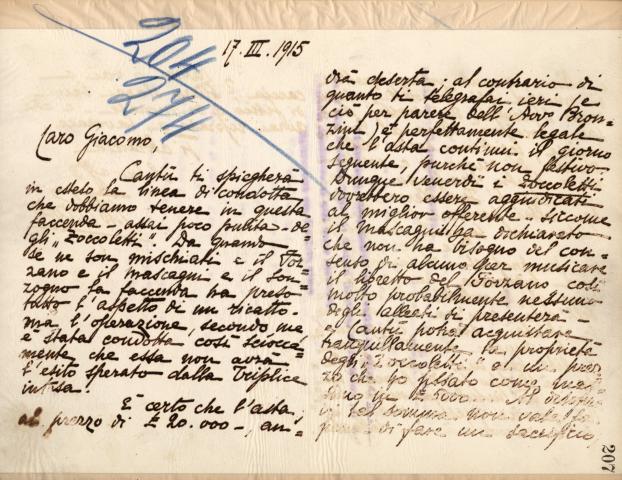 204
2711
17. III. 1915
Caro Giacomo,
Cantù ti spiegherà
in esteso la linea di condotta
che dobbiamo tenere in questa
faccenda - assai poco pulita - de-
gli "Zoccoletti". Da quando
se ne son mischiati e il For-
zano e il Mascagni e il Son-
zogno la faccenda ha preso
tosto l'aspetto di un ricatto.
ma l'operazione, secondo me
è stata condotta così sciocca-
mente, che essa non avrà
l'esito sperato dalla Triplice
intesa.
È certo che l'asta,
al prezzo di £ 20.000 -, an-
drà deserta; al contrario di
quanto ti telegrafai ieri (e
ciò per parere dell'Avv. Bron-
zini) è perfettamente legale
che l'asta continui il giorno
seguente, purchè non festivo.
Dunque Venerdì i Zoccoletti
dovrebbero essere aggiudicati
al miglior offerente. Siccome
il Mascagni ha dichiarato
che non ha bisogno del con-
senso di alcuno per musicare
il libretto del Forzano così
molto probabilmente nessuno
degli alleati si presenterà -
e Cantù potrà acquistare
tranquillamente la proprietà
degli "Zoccoletti" a un prez-
zo che ho fissato come mas-
simo in £ 5000 -. Al disopra
di tal somma non vale la
pena di fare un sacrificio,
207